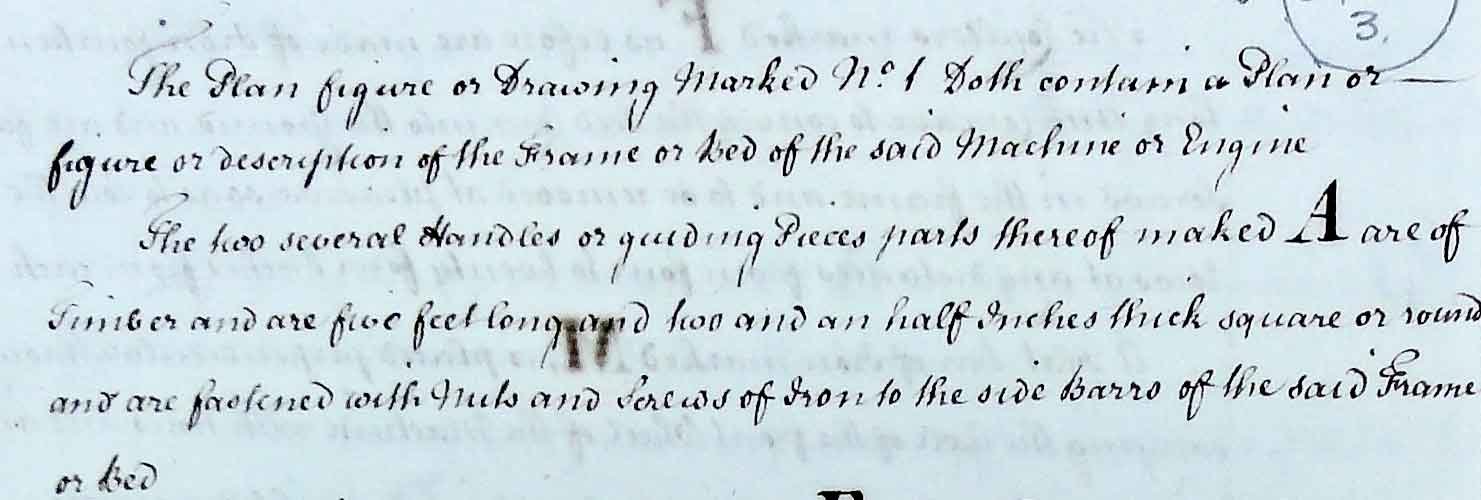 3.
The Plan figure or Drawing Marked No. 1 Doth contain a Plan or
figure or description of the Frame or Bed of the said Machine or Engine
The two several Handles or guiding Pieces parts thereof maked A are of
Timber and are five feet long and two and an half Inches thick square or round
and are fastened with Nuts and Screws of Iron to the side Barrs of the said Frame
or Bed